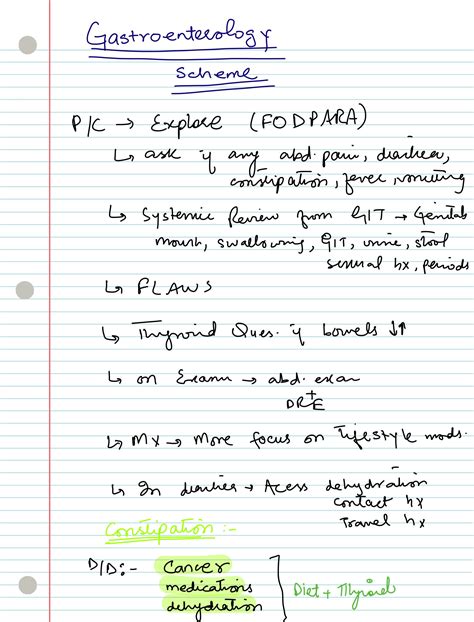 Gastroenterology
Scheme
P/C → Explore (FODPARA)
↳ ask if any abd. pain, diarrhea,
constipation, fever, vomiting
↳ Systemic Review from GIT → Genitals
mouth, swallowing, GIT, urine, stool
sexual hx, periods
↳ FLAWS
↳ Thyroid Ques. if bowels ↓↑
↳ on Exam → abd. exam
+
DRE
↳ Mx → More focus on lifestyle mods.
↳ In diarrhea → Acess dehydration
contact hx
Travel hx
Constipation :-
D/D:- Cancer
medications
dehydration
Diet + Thyroid